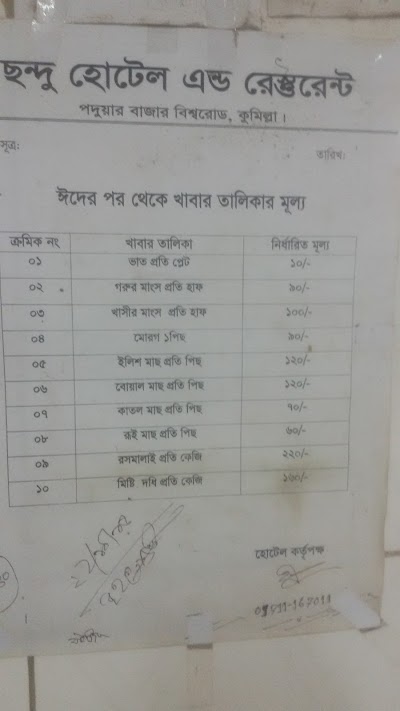 ছন্দু হোটেল এন্ড রেস্তুরেন্ট
পদুয়ার বাজার বিশ্বরোড, কুমিল্লা।
সূত্র:
তারিখ:
ঈদের পর থেকে খাবার তালিকার মূল্য
ক্রমিক নং খাবার তালিকা নির্ধারিত মূল্য
০১ ভাত প্রতি প্লেট ১০/-
০২ গরুর মাংস প্রতি হাফ ৯০/-
০৩ খাসীর মাংস প্রতি হাফ ১০০/-
০৪ মোরগ ১পিছ ৯০/-
০৫ ইলিশ মাছ প্রতি পিছ ১২০/-
০৬ বোয়াল মাছ প্রতি পিছ ১২০/-
০৭ কাতল মাছ প্রতি পিছ ৭০/-
০৮ রুই মাছ প্রতি পিছ ৬০/-
০৯ রসমালাই প্রতি কেজি ২২০/-
১০ মিষ্টি দধি প্রতি কেজি
হোটেল কর্তৃপক্ষ